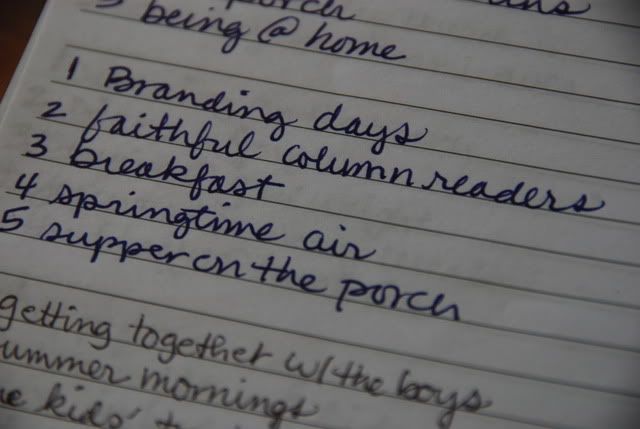 porch
5 being @ home
1 Branding days
2 faithful column readers
3 breakfast
4 springtime air
5 supper on the porch
getting together w/ the boys
ummer mornings
kids'